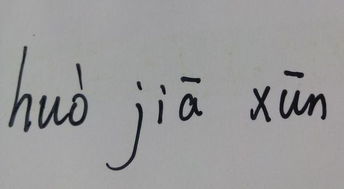 huò jiā xūn